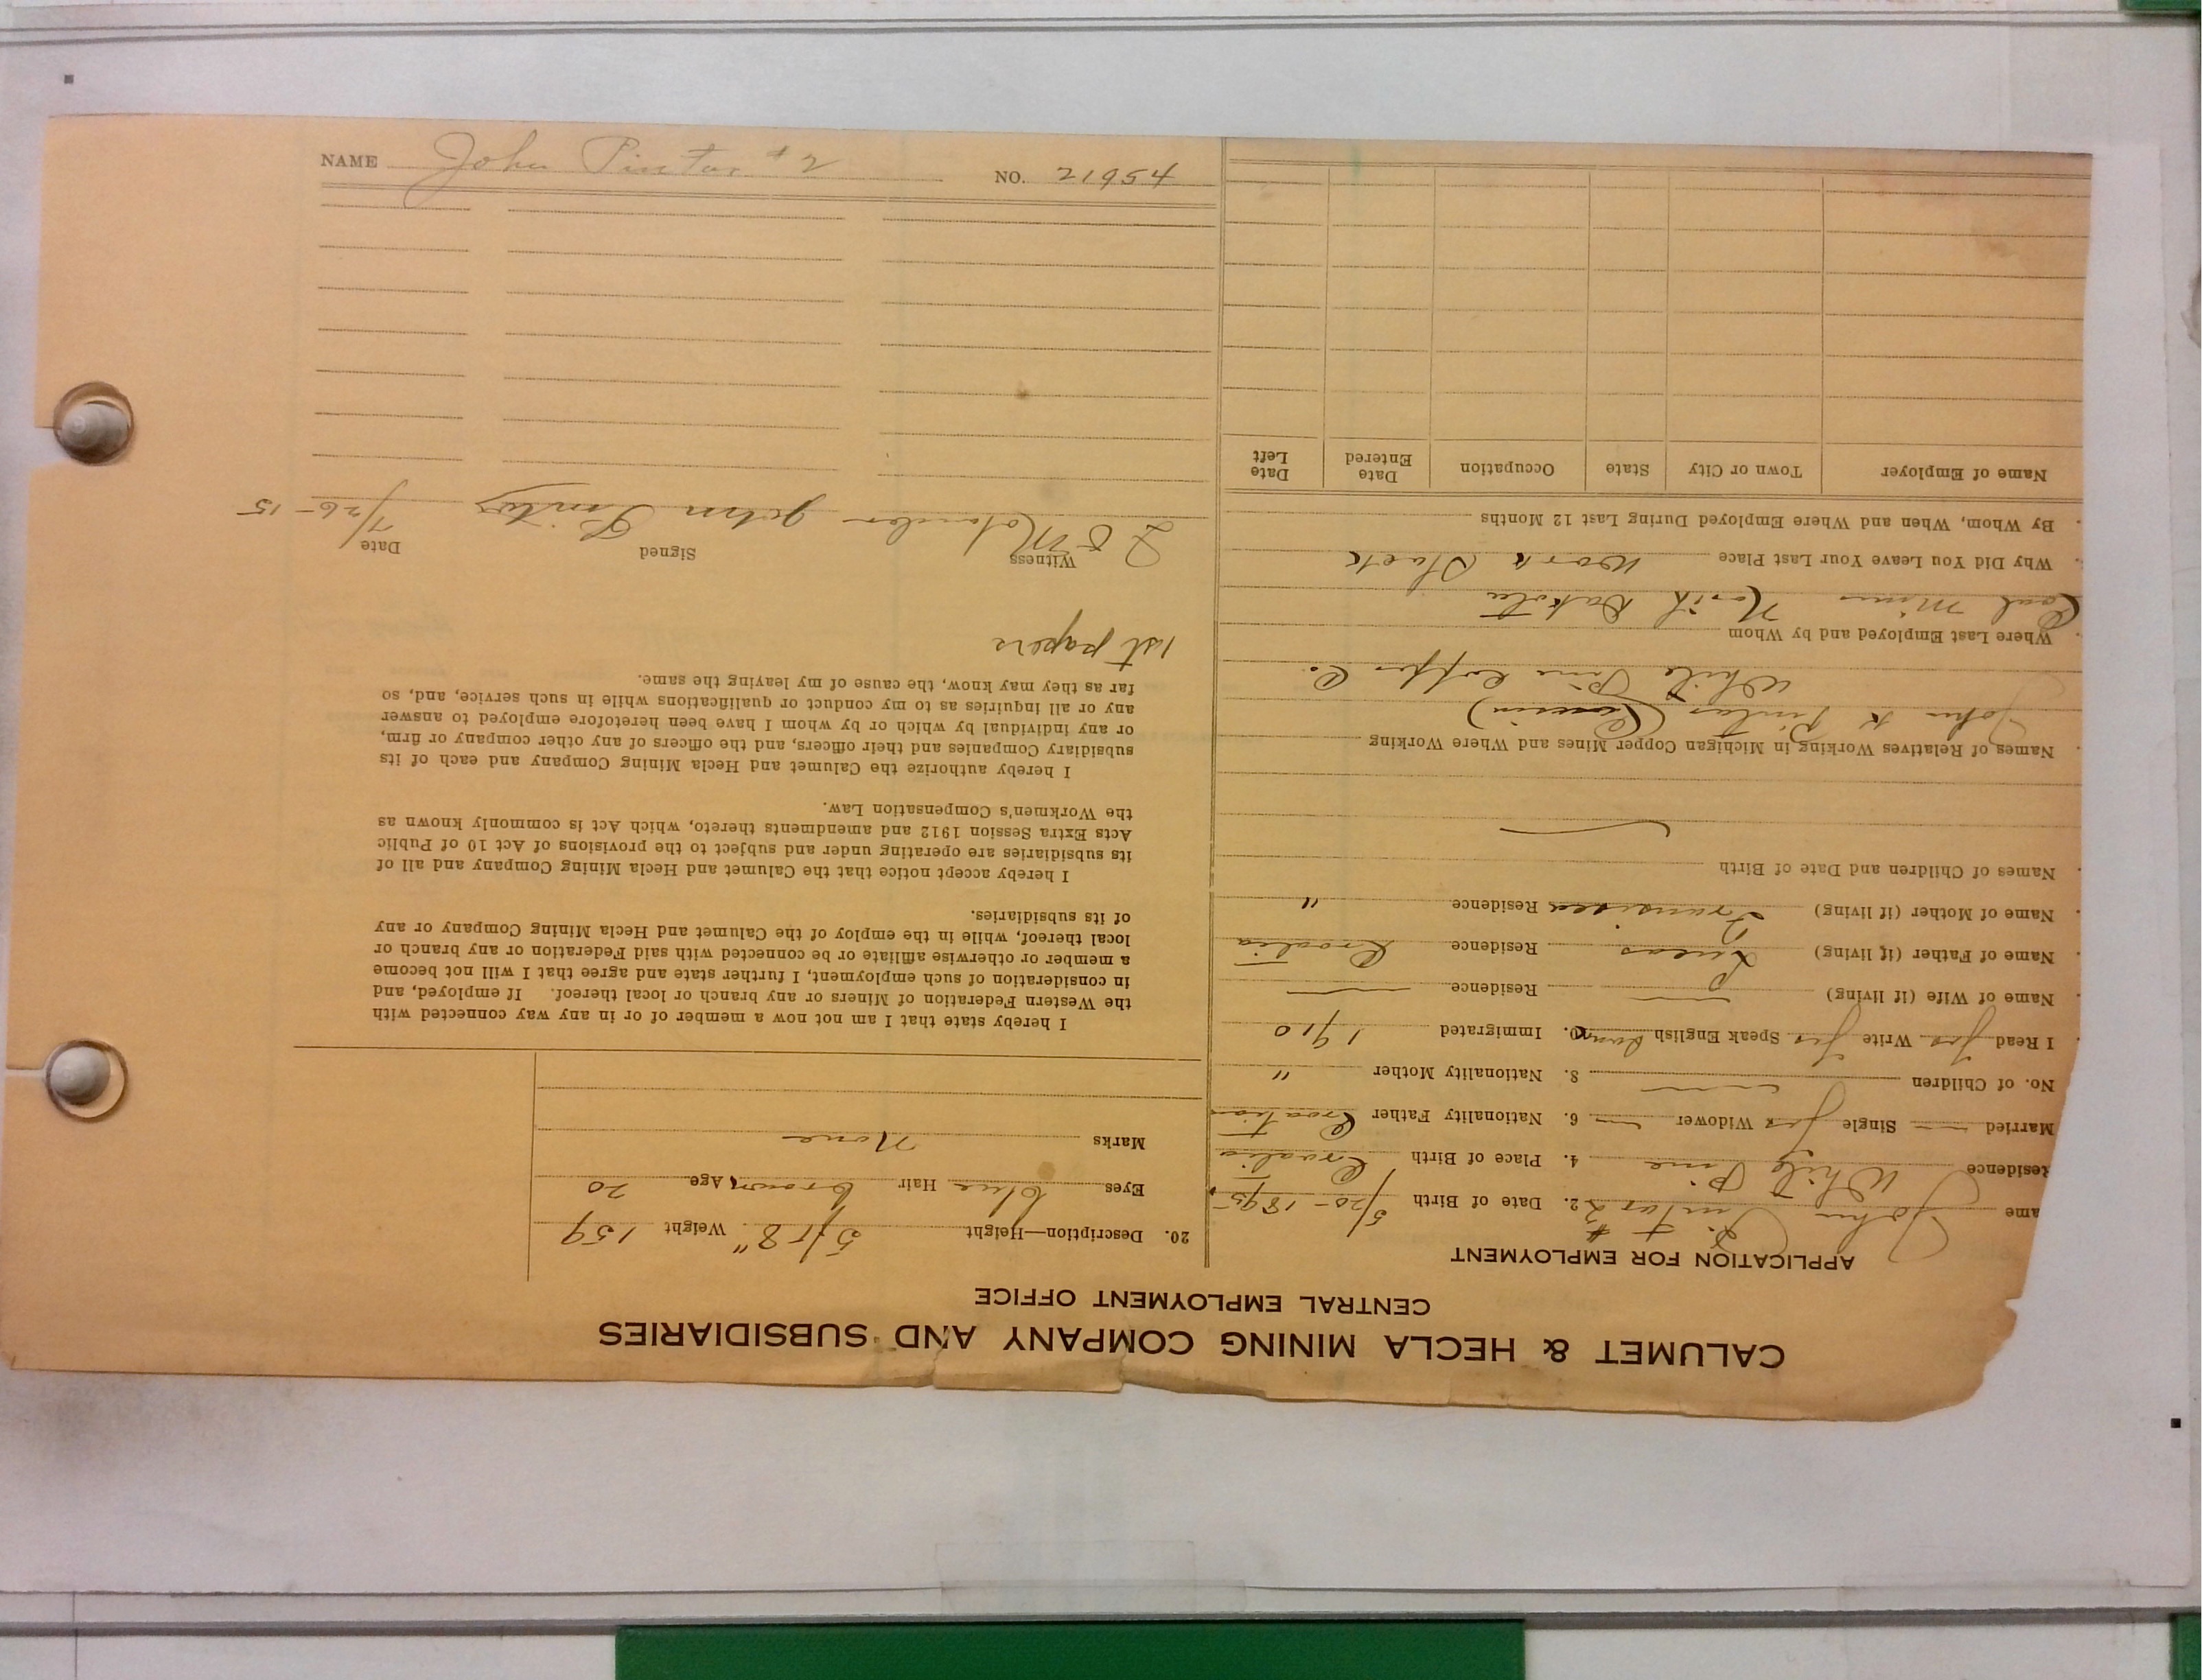 CALUMET & HECLA MINING COMPANY AND SUBSIDIARIES
CENTRAL EMPLOYMENT OFFICE
APPLICATION FOR EMPLOYMENT
ame John Pintar #2 2. Date of Birth 5/20-1895
Residence White Pine 4. Place of Birth Croatia
Married — Single Yes Widower — 6. Nationality Father Croatian
No. of Children — 8. Nationality Mother "
I Read Yes Write Yes Speak English 0. Immigrated 1910
Name of Wife (if living) — Residence —
Name of Father (if living) Lucas Residence Croatia
Name of Mother (if living) Residence "
Names of Children and Date of Birth
Names of Relatives Working in Michigan Copper Mines and Where Working
John K Pintar (Cousin)
White Pine Copper Co.
Where Last Employed and by Whom
Coal Mines North Dakota
Why Did You Leave Your Last Place Work Slack
By Whom, When and Where Employed During Last 12 Months
Name of Employer Town or City State Occupation Date Entered Date Left
20. Description—Height 5 ft 8" Weight 159
Eyes blue Hair brown Age 20
Marks None
I hereby state that I am not now a member of or in any way connected with
the Western Federation of Miners or any branch or local thereof. If employed, and
in consideration of such employment, I further state and agree that I will not become
a member or otherwise affiliate or be connected with said Federation or any branch or
local thereof, while in the employ of the Calumet and Hecla Mining Company or any
of its subsidiaries.
I hereby accept notice that the Calumet and Hecla Mining Company and all of
its subsidiaries are operating under and subject to the provisions of Act 10 of Public
Acts Extra Session 1912 and amendments thereto, which Act is commonly known as
the Workmen's Compensation Law.
I hereby authorize the Calumet and Hecla Mining Company and each of its
subsidiary Companies and their officers, and the officers of any other company or firm,
or any individual by which or by whom I have been heretofore employed to answer
any or all inquiries as to my conduct or qualifications while in such service, and, so
far as they may know, the cause of my leaving the same.
1st papers
Witness Signed Date
John Pintar 7/26-15
NAME John Pintar #2 NO. 21954